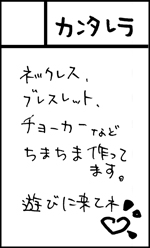 カンタレラ
ネックレス、
ブレスレット、
チョーカーなど
ちまちま作って
ます。
遊びに来てネ